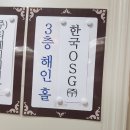 한국OSG㈜
3층 해인홀